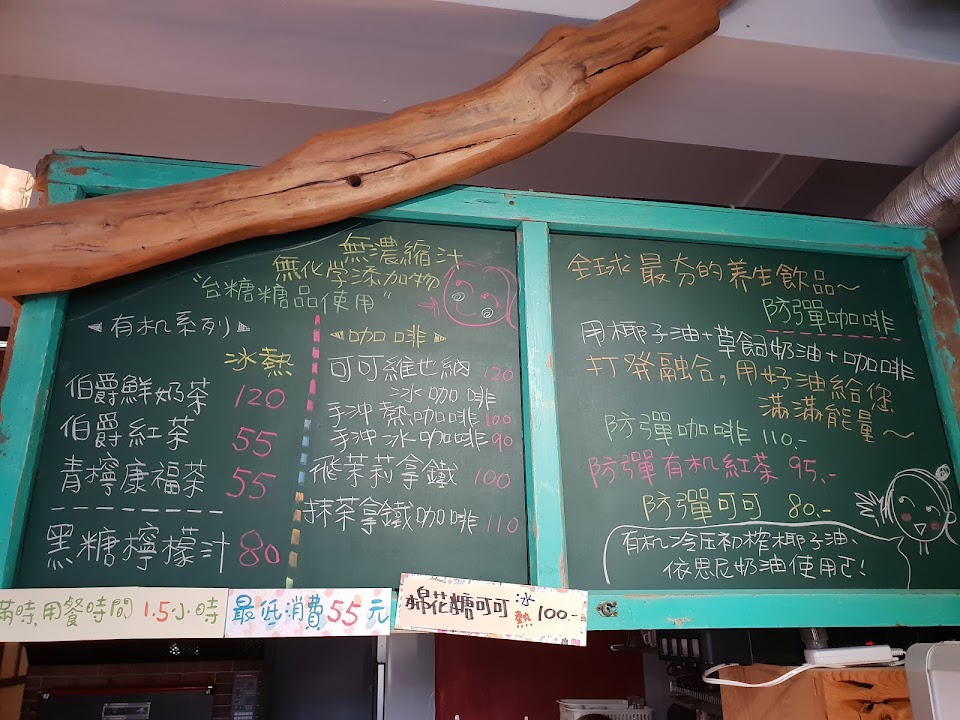 無濃縮汁
無化学添加物
"台糖糖品使用"
有机系列
冰熱
伯爵鮮奶茶 120
伯爵紅茶 55
青檸康福茶 55
黑糖檸檬汁 80
咖啡
可可維也納 120
冰咖啡
手沖熱咖啡 100
手沖冰咖啡 90
飛茉莉拿鐵 100
抹茶拿鐵咖啡 110
全球最夯的养生飲品~
防彈咖啡
用椰子油+草飼奶油+咖啡
打發融合,用好油給您
滿滿能量~
防彈咖啡 110.-
防彈有机紅茶 95.-
防彈可可 80.-
有机冷压初榨椰子油、
依思尼奶油使用!
滿時,用餐時間 1.5小時
最低消費55元
棉花糖可可 冰熱 100.-